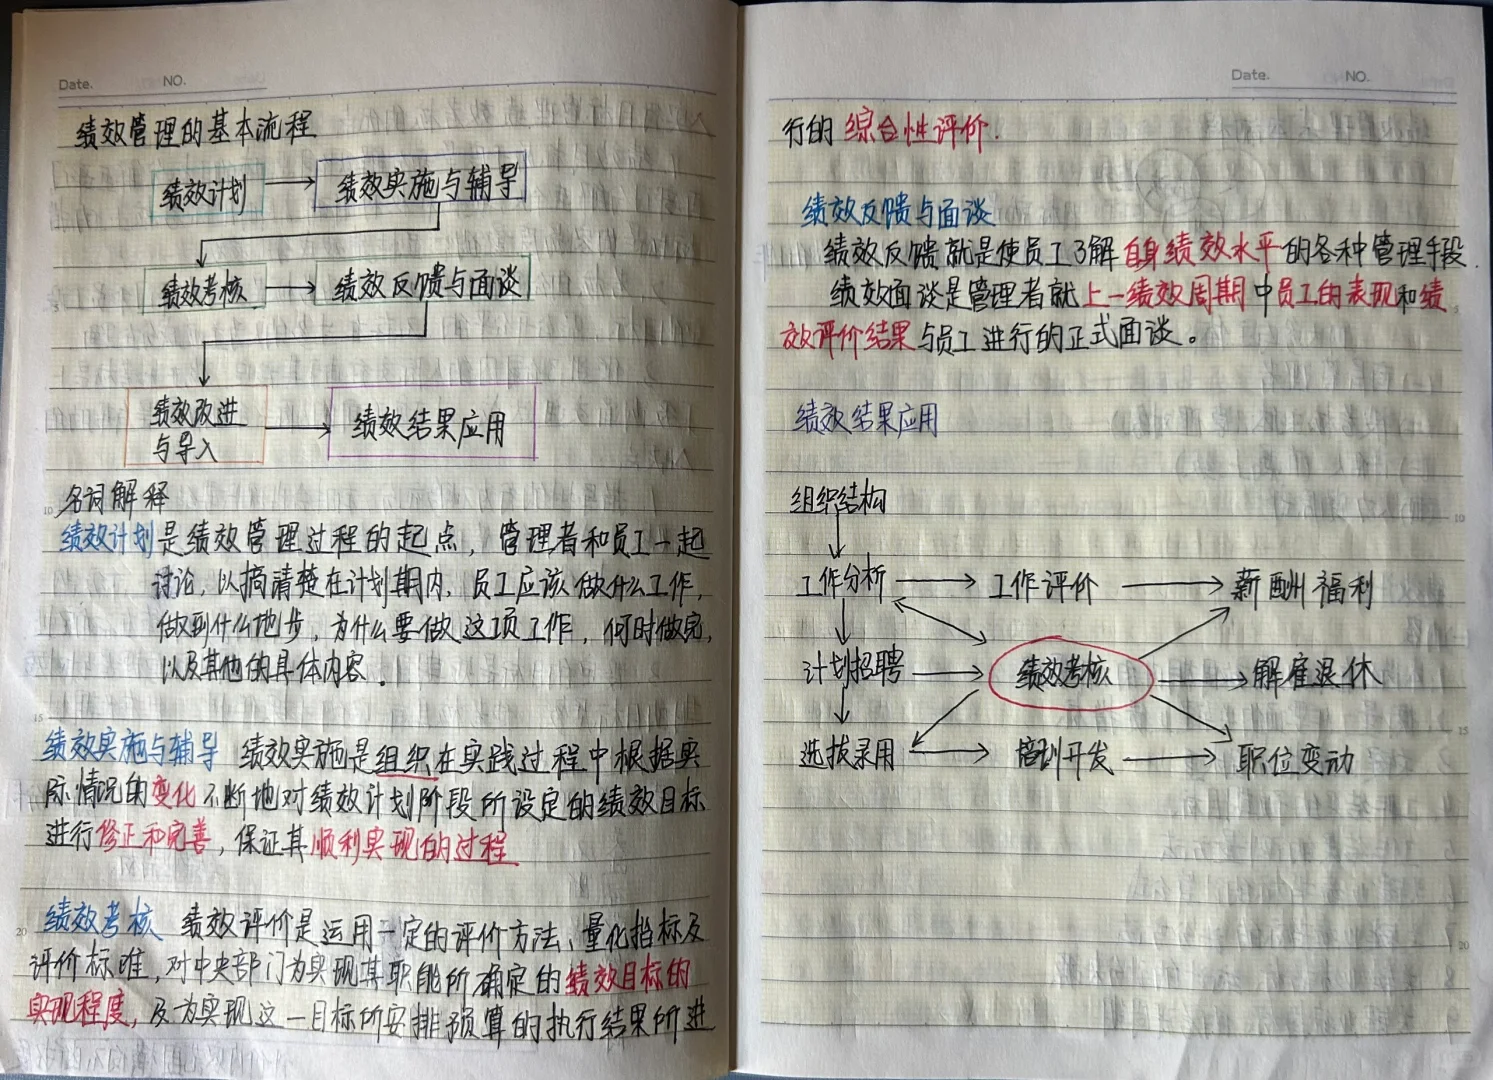 Date. NO.
绩效管理的基本流程
绩效计划 → 绩效实施与辅导
绩效考核 → 绩效反馈与面谈
绩效改进
与导入 → 绩效结果应用
名词解释
绩效计划是绩效管理过程的起点，管理者和员工一起
讨论，以搞清楚在计划期内，员工应该做什么工作，
做到什么地步，为什么要做这项工作，何时做完，
以及其他的具体内容。
绩效实施与辅导 绩效实施是组织在实践过程中根据实
际情况的变化不断地对绩效计划阶段所设定的绩效目标
进行修正和完善，保证其顺利实现的过程
绩效考核 绩效评价是运用一定的评价方法、量化指标及
评价标准，对中央部门为实现其职能所确定的绩效目标的
实现程度，及为实现这一目标所安排预算的执行结果所进
Date. NO.
行的综合性评价.
绩效反馈与面谈
绩效反馈就是使员工了解自身绩效水平的各种管理手段.
绩效面谈是管理者就上一绩效周期中员工的表现和绩
效评价结果与员工进行的正式面谈。
绩效结果应用
组织结构
工作分析 → 工作评价 → 薪酬福利
计划招聘 → 绩效考核 → 解雇退休
选拔录用 → 培训开发 → 职位变动